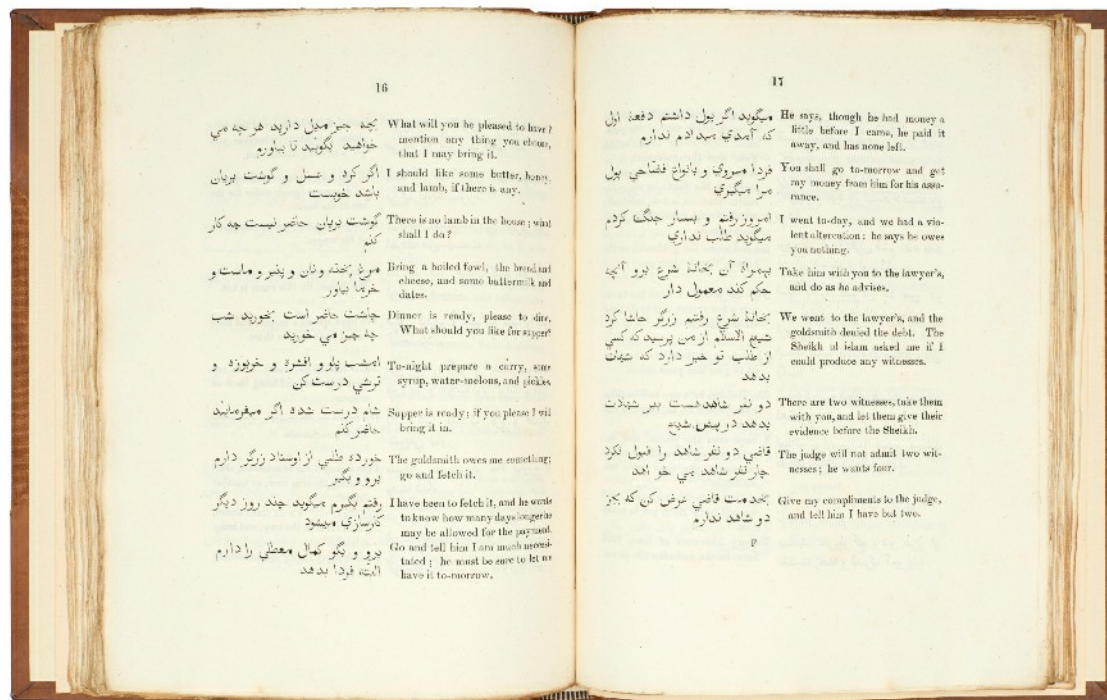 16
بچه چيز ميل داريد هر چه مي
خواهيد بگوئيد تا بياورم
What will you be pleased to have?
mention any thing you choose,
that I may bring it.
اگر كره و عسل و گوشت بريان
باشد خوبست
I should like some butter, honey,
and lamb, if there is any.
گوشت بريان حاضر نيست چه كار
كنم
There is no lamb in the house; what
shall I do?
مرغ پخته ونان و پنير و ماست و
خرما بياور
Bring a boiled fowl, the bread and
cheese, and some buttermilk and
dates.
چاشت حاضر است بخوريد شب
چه چيز مي خوريد
Dinner is ready, please to dine,
What should you like for supper?
امشب پلو و افشره و خربوزه و
ترشي درست كن
To-night prepare a curry, some
syrup, water-melons, and pickles.
شام درست شده اگر ميفرمائيد
حاضر كنم
Supper is ready; if you please I will
bring it in.
خورده طلبي از اوستاد زرگر دارم
برو و بگير
The goldsmith owes me something;
go and fetch it.
رفتم بگيرم ميگويد چند روز ديگر
كارسازي ميشود
I have been to fetch it, and he wants
to know how many days longer he
may be allowed for the payment.
برو و بگو كمال معطلي را دارم
البته فردا بدهد
Go and tell him I am much necessi-
tated; he must be sure to let me
have it to-morrow.
17
ميگويد اگر پول داشتم دفعهٔ اول
كه آمدي ميدادم ندارم
He says, though he had money a
little before I came, he paid it
away, and has none left.
فردا ميروي و بانواع پول
مرا ميگيري
You shall go to-morrow and get
my money from him for his assu-
rance.
امروز رفتم و بسيار جنگ كردم
ميگويد طلب نداري
I went to-day, and we had a vio-
lent altercation: he says he owes
you nothing.
بهمراه آن بخانهٔ شرع برو آنچه
حكم كند معمول دار
Take him with you to the lawyer's,
and do as he advises.
بخانهٔ شرع رفتم زرگر حاشا كرد
شيخ الاسلام از من پرسيد كه كسي
از طلب تو خبر دارد كه شهادت
بدهد
We went to the lawyer's, and the
goldsmith denied the debt. The
Sheikh ul islam asked me if I
could produce any witnesses.
دو نفر شاهد هست ببر شهادت
بدهد در پيش شيخ
There are two witnesses, take them
with you, and let them give their
evidence before the Sheikh.
قاضي دو نفر شاهد را قبول نكرد
چار نفر شاهد مي خواهد
The judge will not admit two wit-
nesses; he wants four.
بخدمت قاضي عرض كن كه بجز
دو شاهد ندارم
Give my compliments to the judge,
and tell him I have but two.